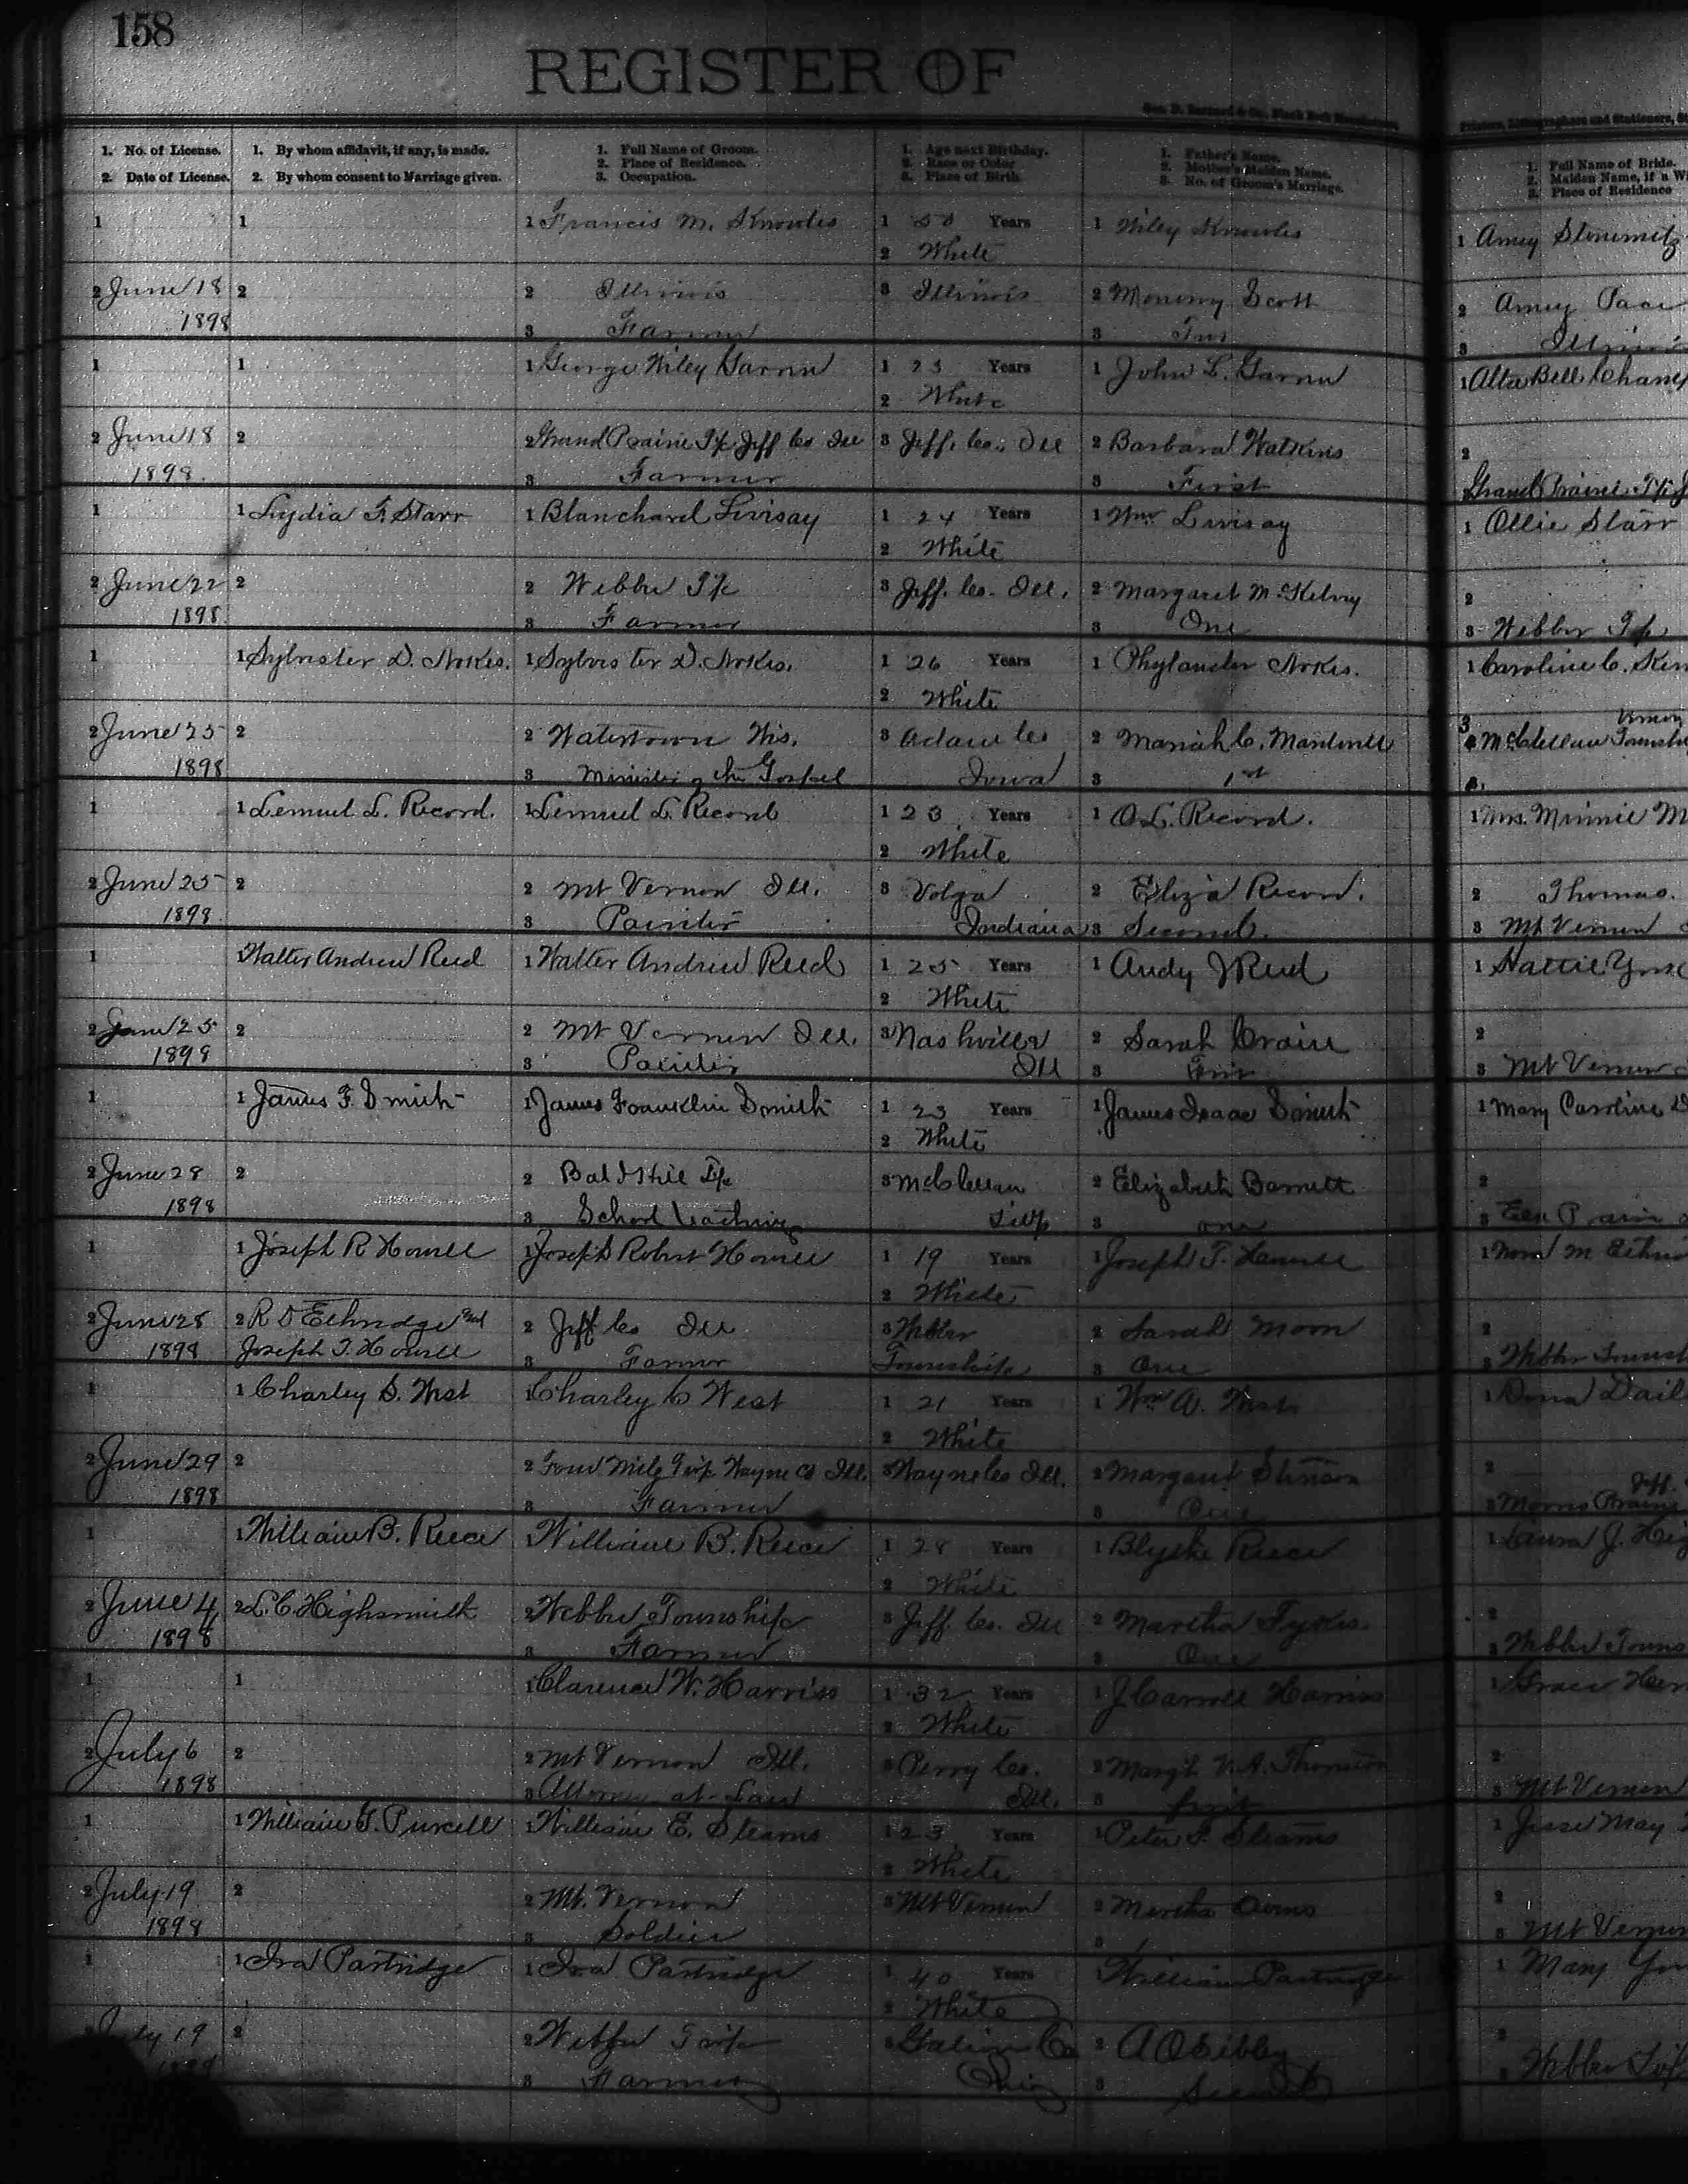 158
REGISTER OF
Geo. D. Barnard & Co. Blank Book Manufacturers
Printers, Lithographers and Stationers, St
1. No. of License.
2. Date of License.
1. By whom affidavit, if any, is made.
2. By whom consent to Marriage given.
1. Full Name of Groom.
2. Place of Residence.
3. Occupation.
1. Age next Birthday.
2. Race or Color
3. Place of Birth.
1. Father's Name.
2. Mother's Maiden Name.
3. No. of Groom's Marriage.
1. Full Name of Bride.
2. Maiden Name, if a Wi
3. Place of Residence
1 1 1 Francis M. Knowles 1 Years 1 Wiley Knowles 1 Amey Stinemitz
2 White
2 June 18 2 2 Illinois 3 Illinois 2 Scott 2 Amey Pace
1898 3 Farmer 3 Two 3 Illinois
1 1 1 George Wiley 1 23 Years 1 John L. 1 Alta Bell Chaney
2 White
2 June 18 2 2 Grand Prairie Tp Jeff Co Ill 3 Jeff. Co. Ill 2 Barbara Watkins 2
1898. 3 Farmer 3 First Grand Prairie Tp J
1 1 Lydia F. Starr 1 Blanchard Livisay 1 24 Years 1 Wm Livisay 1 Ollie Starr
2 White
2 June 22 2 2 Webber Tp 3 Jeff. Co. Ill. 2 Margaret McKelvy 2
1898. 3 Farmer 3 One 3 Webber Tp
1 1 Sylvister D. Nokes. 1 Sylvister D. Nokes. 1 26 Years 1 Phylander Nokes. 1 Caroline C.
2 White
2 June 25 2 2 Watertown Wis. 3 Adair Co 2 Mariah C. 3 McClellan Township
1898 3 Minister of the Gospel Iowa 3 1st
1 1 Lemuel L. Record. 1 Lemuel L. Record 1 23 Years 1 O.L. Record. 1 Mrs. Minnie M
2 White
2 June 25 2 2 Mt Vernon Ill. 3 Volga 2 Eliza Record. 2 Thomas.
1898. 3 Painter Indiana 3 Second. 3 Mt Vernon
1 1 Walter Andrew Reed 1 Walter Andrew Reed 1 25 Years 1 Andy J Reed 1 Hattie
2 White
2 June 25 2 2 Mt Vernon Ill. 3 Nashville 2 Sarah Crain 2
1898 3 Painter Ill 3 First 3 Mt Vernon
1 1 James F. Smith 1 James Franklin Smith 1 23 Years 1 James Isaac Smith 1 Mary Caroline D
2 White
2 June 28 2 2 Bald Hill Tp 3 McClellan 2 Elizabeth Barnett 2
1898 3 School Teaching Twp 3 one 3
1 1 Joseph R Howell 1 Joseph Robert Howell 1 19 Years 1 Joseph T. Howell 1
2 White
2 June 28 2 R D Ethridge and 2 Jeff Co Ill 3 Webber 2 Sarah Moon 2
1898 Joseph T. Howell 3 Farmer Township 3 One 3 Webber
1 1 Charley S. West 1 Charley C West 1 21 Years 1 Wm A. West 1 Dona Dail
2 White
2 June 29 2 2 Four Mile Twp. Wayne Co Ill. 3 Wayne Co Ill. 2 Margaret Stinson 2
1898 3 Farmer 3 One 3 Moores Prairie
1 1 William B. Reece 1 William B. Reece 1 28 Years 1 Blythe Reece 1 Laura J. Hig
2 White
2 June 4 2 L.C. Highsmith 2 Webber Township 3 Jeff. Co. Ill 2 Martha 2
1898 3 Farmer 3 One 3 Webber Towns
1 1 1 Clarence W. Harriss 1 32 Years 1 J Carroll Harriss 1 Grace
2 White
2 July 6 2 2 Mt Vernon Ill. 3 Perry Co. 2 2
1898 3 Attorney at Law Ill. 3 first 3 Mt Vernon
1 1 William G. Purcell 1 William E. Stearns 1 23 Years 1 Peter Stearns 1 Jessie May
2 White
2 July 19 2 2 Mt. Vernon 3 Mt Vernon 2 Martha 2
1898 3 Soldier 3 3 Mt Vernon
1 1 Ira Partridge 1 Ira Partridge 1 40 Years 1 William Partridge 1 Mary
2 White
July 19 2 2 Webber Twp 3 2 A O Sibley 2
3 Farmer 3 Second 3 Webber Twp